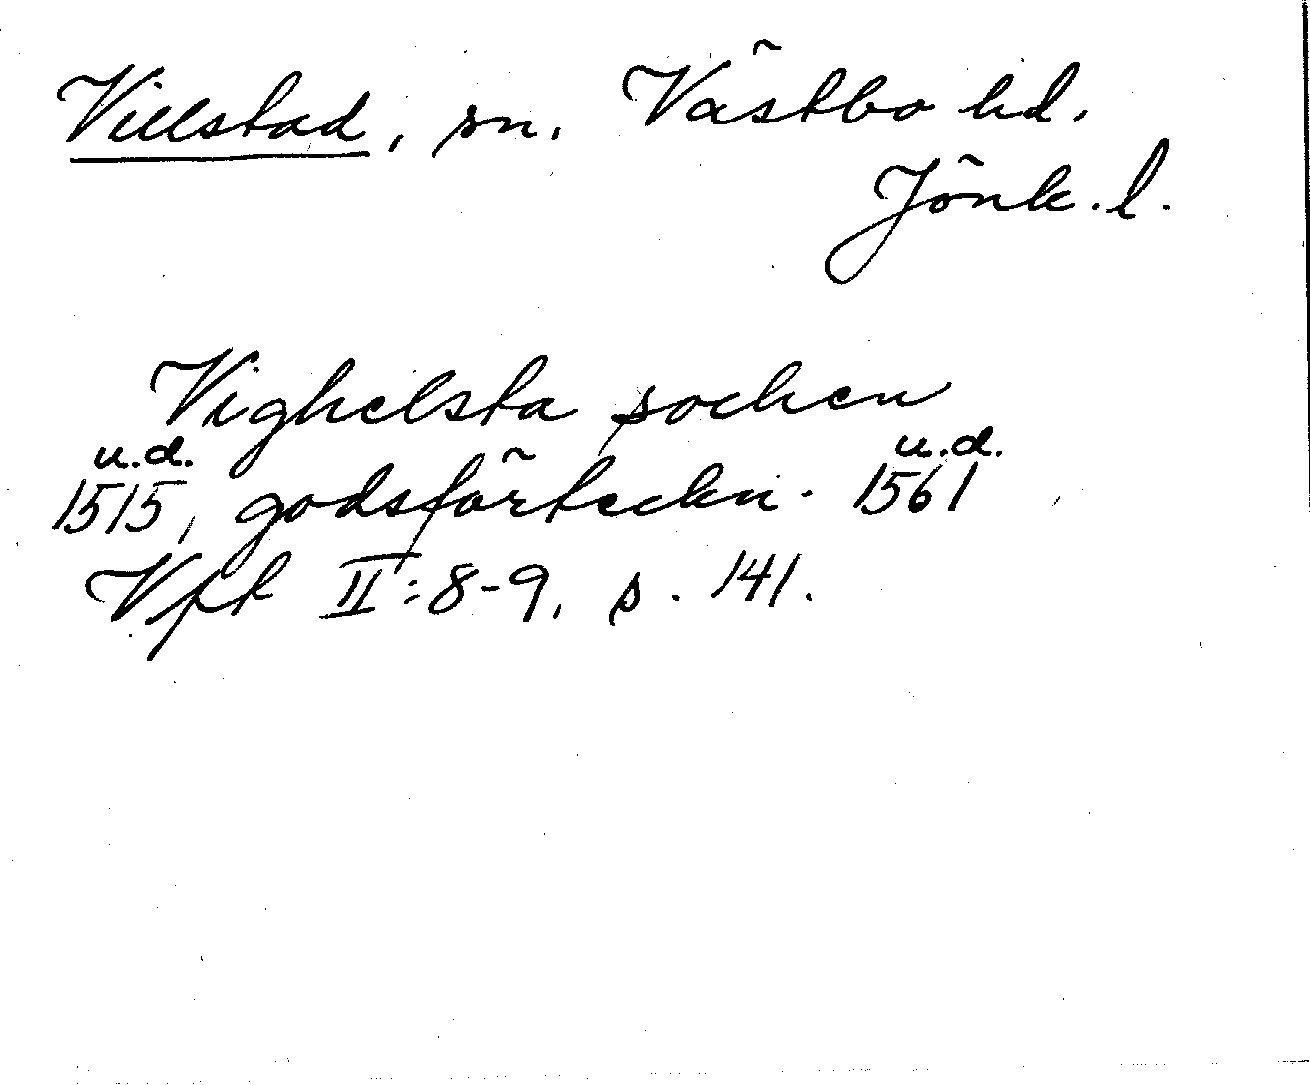 Villstad, sn. Västbo hd.
Jönk. l.
Vighelsta sochen
u.d. u.d.
1515, godsförteckn. 1561
Vpf II:8-9, s. 141.